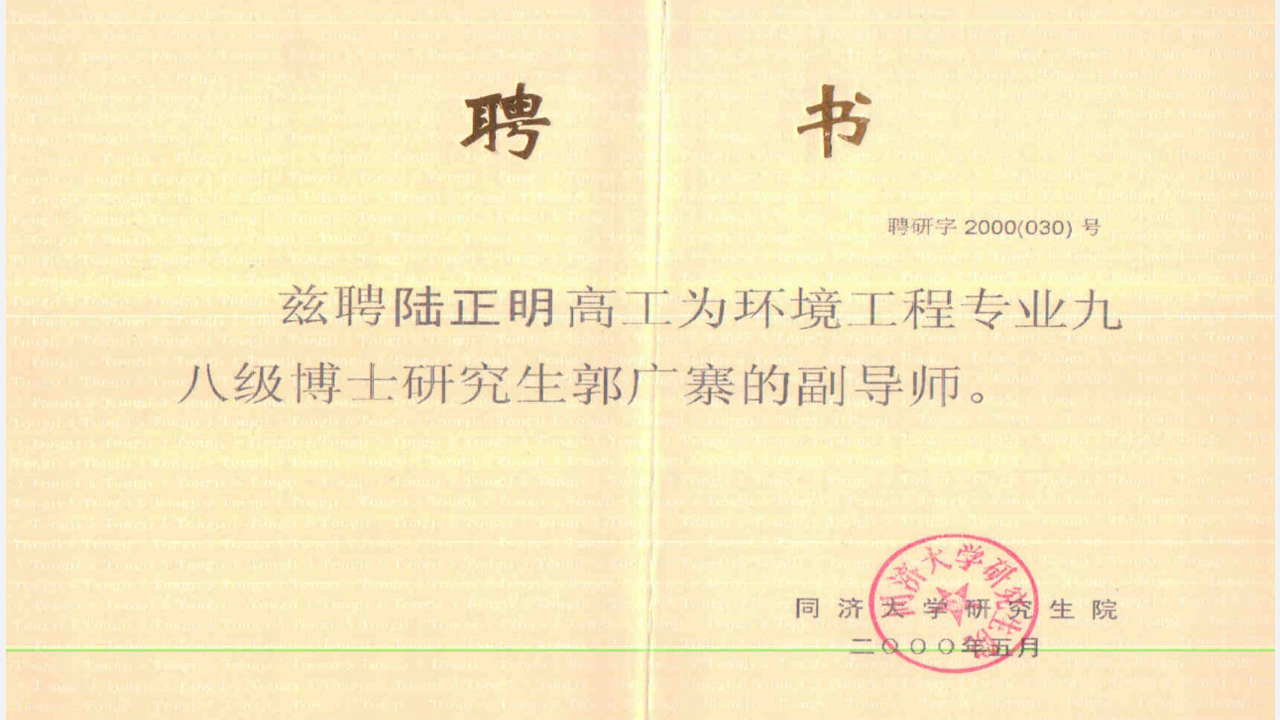 聘书
聘研字 2000(030) 号
兹聘陆正明高工为环境工程专业九
八级博士研究生郭广寨的副导师。
同济大学研究生院
二〇〇〇年五月
同济大学研究生院